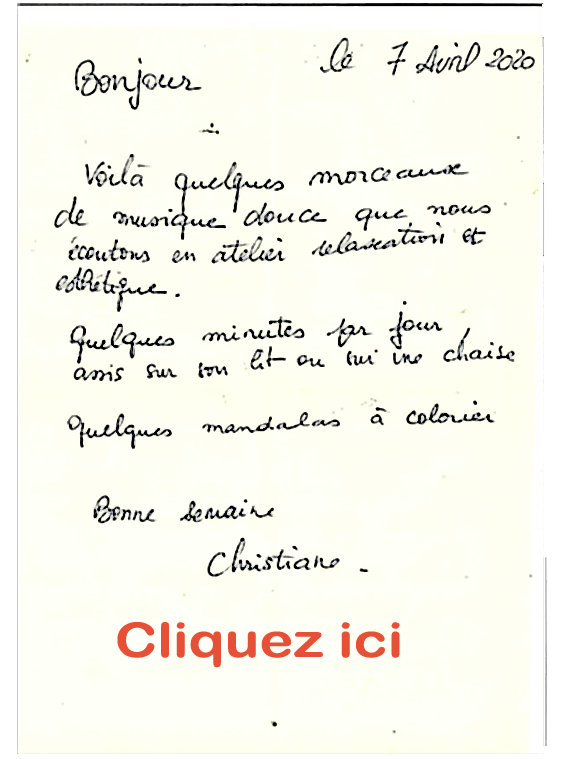 le 7 Avril 2020
Bonjour
Voilà quelques morceaux
de musique douce que nous
écoutons en atelier relaxation et
esthétique.
Quelques minutes par jour,
assis sur son lit ou sur une chaise
Quelques mandalas à colorier
Bonne semaine
Christiane -
Cliquez ici